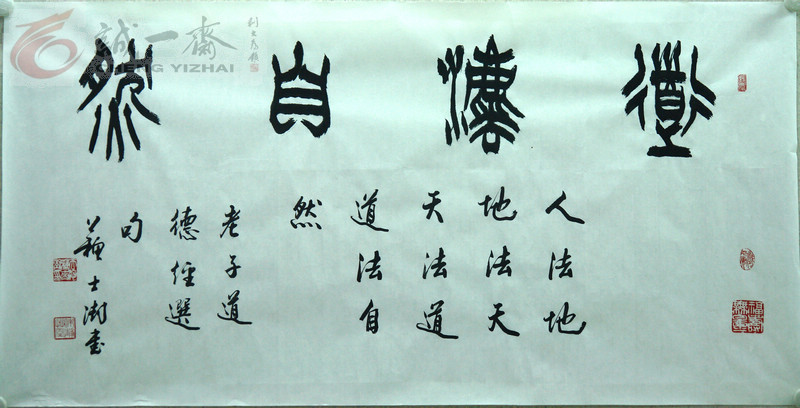 道灋自然
人法地
地法天
天法道
道法自
然
老子道
德經選
句
蘇士澍書
誠一齋
CHENG YIZHAI